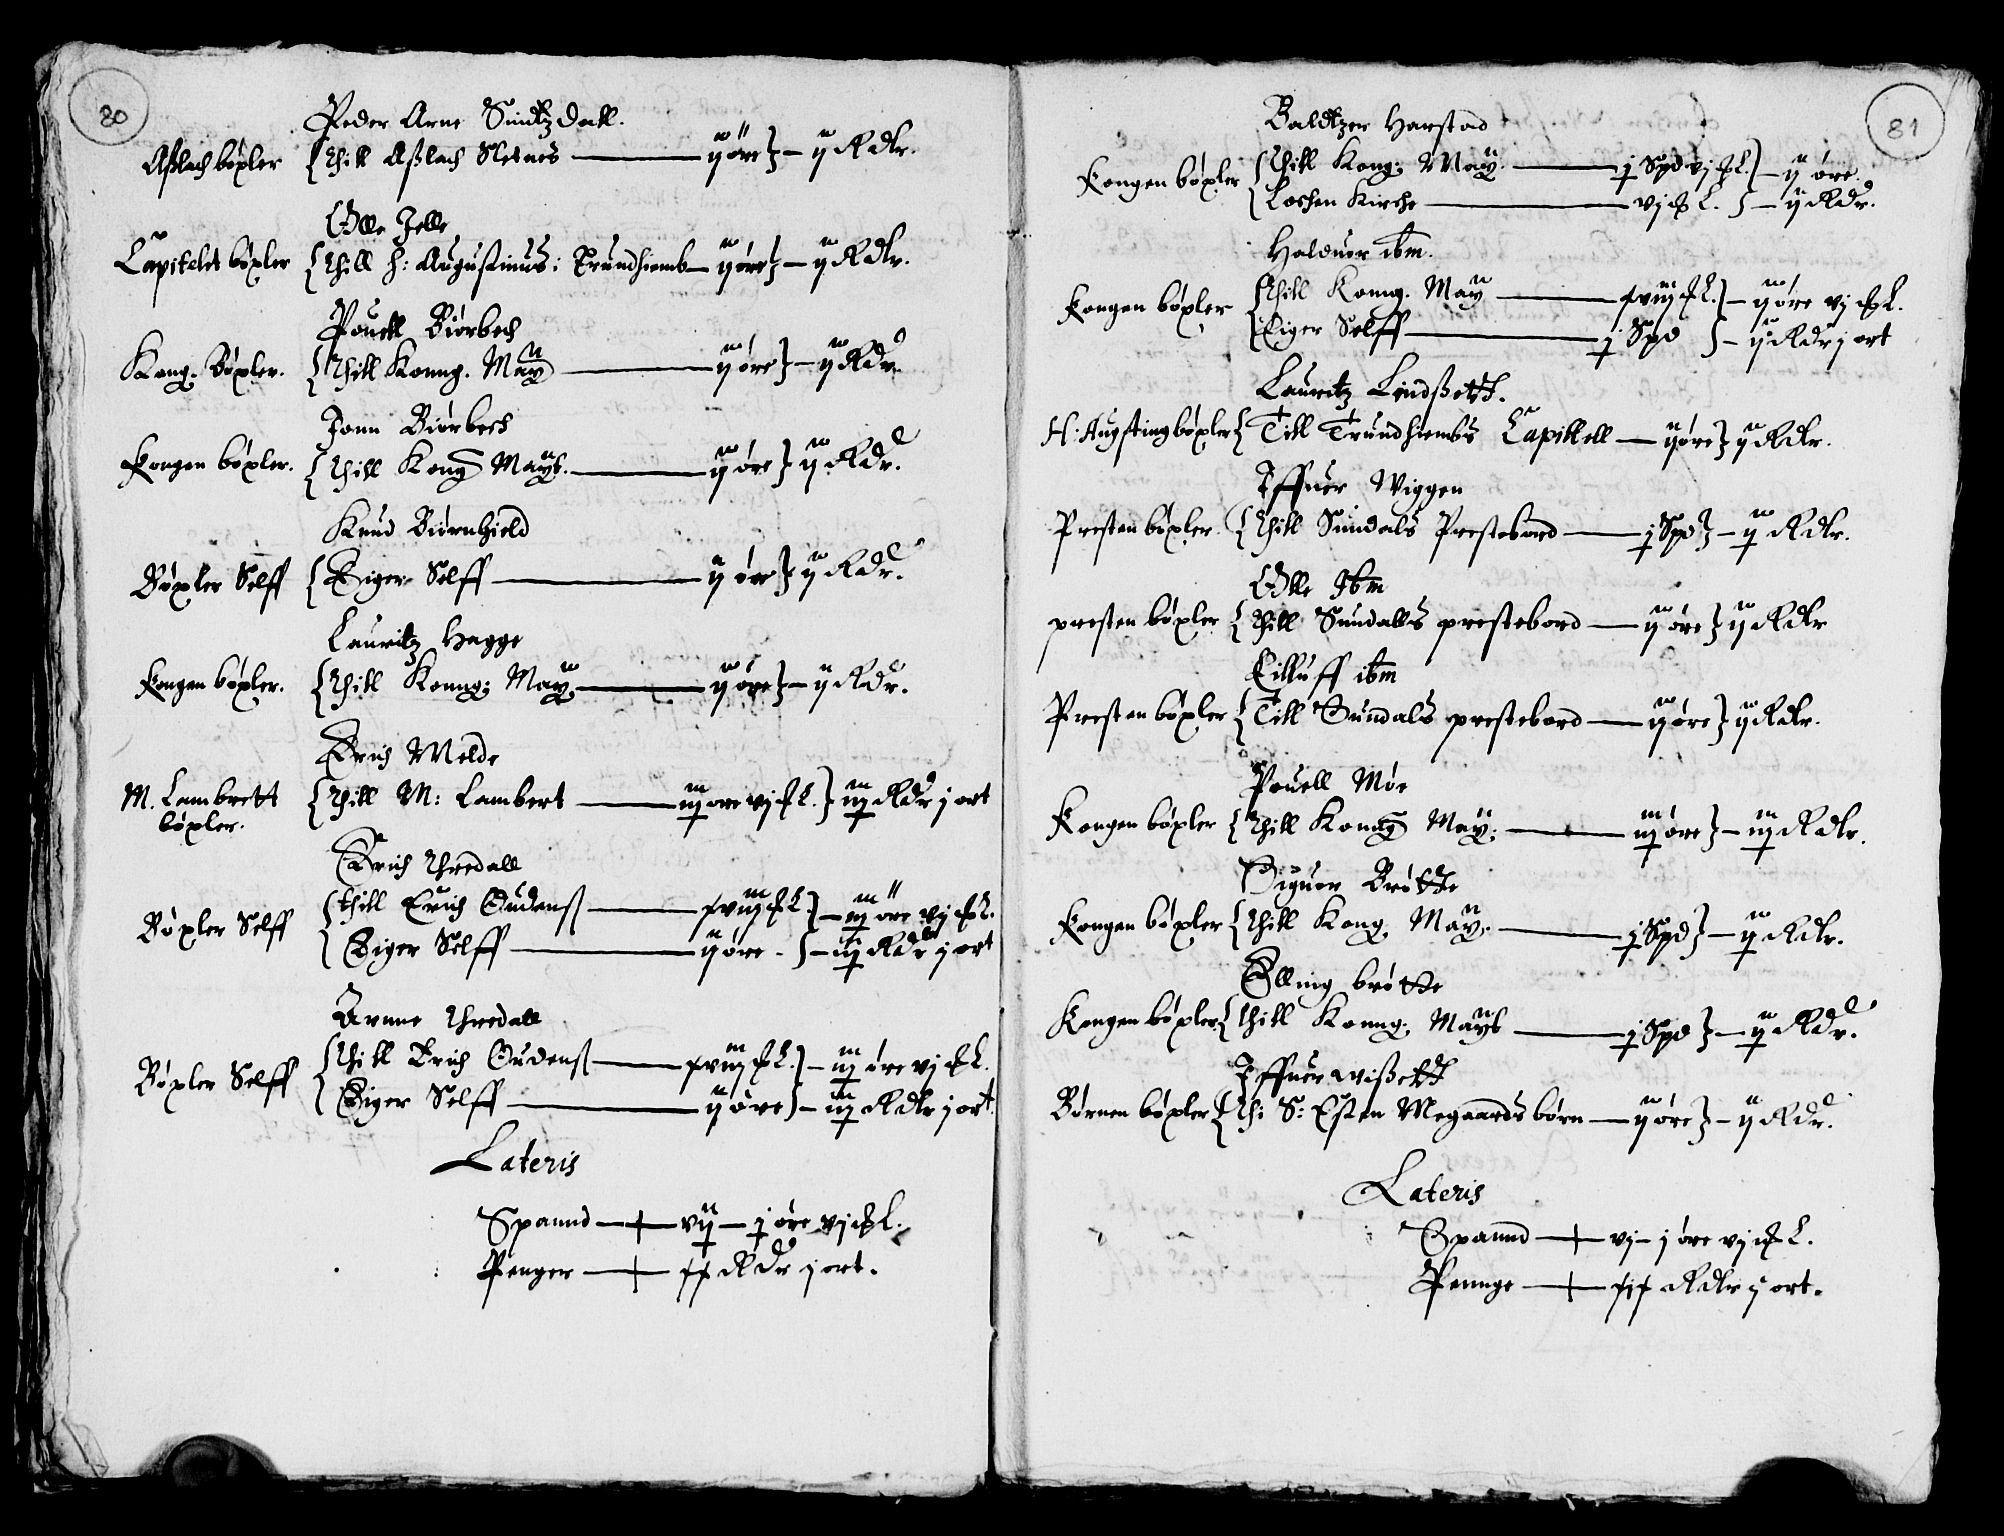 80
Peder Arne Sundtzdall.
Aßlach bøxler { Thill Aßlach Sletnes — ij øre } — ij Rdlr.
Olle Jelle
Capitelet bøxler { Thill H: Augustinus i Trundhiemb — ij øre } — ij Rdlr.
Pouell Biørbech
Kong. Bøxler. { Thill Konng. May — ij øre } — ij Rdr.
Jonn Biørbech
Kongen bøxler. { Thill Kong Mays. — ij øre } ij Rdr.
Knud Biørnhield
Bøxler Selff { Eiger Selff — ij øre } ij Rdr.
Lauritz Hagge
Kongen bøxler. { Thill Konng: May. — ij øre } — ij Rdr.
Erich Melde
M. Lambrett bøxler. { Thill M: Lambert — iij øre vj ȣ L. } iij Rdr j ort
Erich Thredall
Bøxler Selff { thill Erich Oudenß — xviij ȣ L } — iij øre vj ȣ L.
{ Eiger Selff — ij øre - } — iij Rdlr j ort
Arnne Thredall
Bøxler Selff { Thill Erich Oudenß — xviij ȣ L. } — iij øre vj ȣ L.
{ Eiger Selff — ij øre } — iij Rdlr j ort.
Lateris
Spannd — vij — j øre vj ȣ L.
Penger — xx Rdr j ort.
81
Baldtzer Harstad
Kongen bøxler { Thill Kong: May. — j Spd vj ȣ L. } — ij øre.
{ Loschen Kirche — vj ȣ L. } — ij Rdr.
Halduor ibm.
Kongen bøxler { Thill Konng. May — xviij ȣ L. } — ij øre vj ȣ L.
{ Eiger Selff — j Spd } — ij Rdr j ort
Lauritz Lindßett.
H: Augsting bøxler { Till Trundhiembs Capittell — ij øre } ij Rdlr.
Iffuer Wiggen
Presten bøxler. { Thill Sundals Prestebord — j Spd } — ij Rdlr.
Olle Ibm
presten bøxler { Thill Sundalls prestebord — ij øre } ij Rdlr
Eilluff ibm
Presten bøxler { Till Sundals prestebord — ij øre } ij Rdlr.
Pouell Møe
Kongen bøxler { Thill Konng May: — iij øre } — iij Rdlr.
Siguor Brøtte
Kongen bøxler { Thill Kong. May. — j Spd } — ij Rdlr.
Elling brøtte
Kongen bøxler { Thill Konng. Mays — j Spd } — ij Rdr.
Iffuer wißett
Børnen bøxler { Thi S: Esten Megaards børn — ij øre } — ij Rdr.
Lateris
Spannd — vj — j øre vj ȣ L.
Pennge — xix Rdlr j ort.